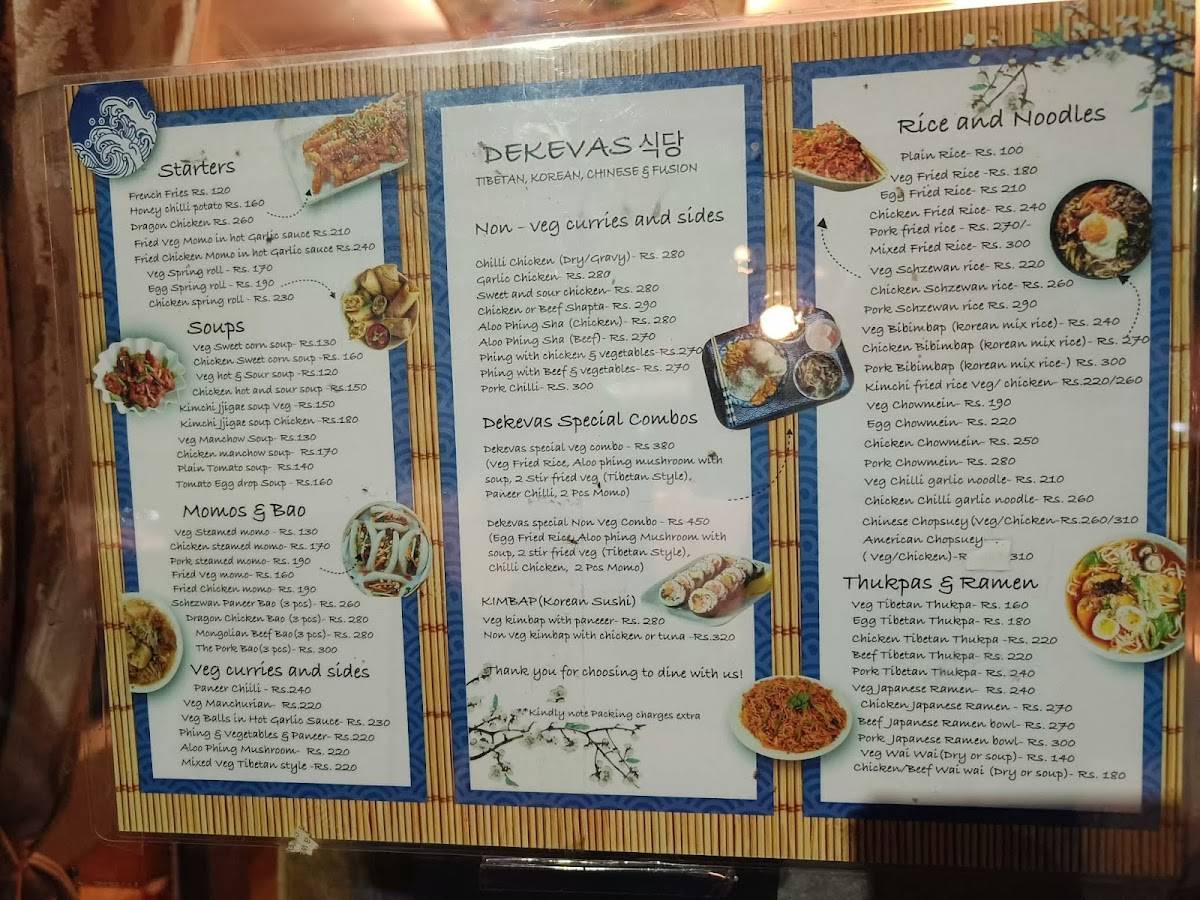 Starters
French Fries Rs. 120
Honey chilli potato Rs. 160
Dragon Chicken Rs. 260
Fried Veg Momo in hot Garlic sauce Rs.210
Fried Chicken Momo in hot Garlic sauce Rs.240
Veg Spring roll - Rs. 170
Egg Spring roll - Rs. 190
Chicken spring roll - Rs. 230
Soups
Veg Sweet corn soup- Rs.130
Chicken Sweet corn soup -Rs. 160
Veg hot & Sour soup -Rs.120
Chicken hot and sour soup -Rs.150
Kimchi Jjigae soup Veg -Rs.150
Kimchi Jjigae soup Chicken -Rs.180
Veg Manchow Soup- Rs.130
Chicken manchow soup- Rs.170
Plain Tomato soup- Rs.140
Tomato Egg drop Soup - Rs.160
Momos & Bao
Veg Steamed momo - Rs. 130
Chicken steamed momo- Rs. 170
Pork steamed momo- Rs. 190
Fried Veg momo- Rs. 160
Fried Chicken momo- Rs. 190
Schezwan Paneer Bao (3 pcs)- Rs. 260
Dragon Chicken Bao (3 pcs)- Rs. 280
Mongolian Beef Bao(3 pcs)- Rs. 280
The Pork Bao(3 pcs)- Rs. 300
Veg curries and sides
Paneer Chilli - Rs.240
Veg Manchurian- Rs.220
Veg Balls in Hot Garlic Sauce- Rs. 230
Phing & Vegetables & Paneer-Rs.220
Aloo Phing Mushroom- Rs. 220
Mixed Veg Tibetan style -Rs. 220
DEKEVAS 식당
TIBETAN, KOREAN, CHINESE & FUSION
Non - veg curries and sides
Chilli Chicken (Dry/Gravy)- Rs. 280
Garlic Chicken- Rs. 280
Sweet and sour chicken- Rs. 280
Chicken or Beef Shapta- Rs. 290
Aloo Phing Sha (Chicken)- Rs. 280
Aloo Phing Sha (Beef)- Rs. 270
Phing with chicken & vegetables-Rs.270
Phing with Beef & vegetables- Rs. 270
Pork Chilli- RS. 300
Dekevas Special Combos
Dekevas special veg combo - Rs 380
(Veg Fried Rice, Aloo phing mushroom with
soup, 2 Stir fried veg (Tibetan Style),
Paneer Chilli, 2 Pcs Momo)
Dekevas special Non Veg Combo - Rs 450
(Egg Fried Rice, Aloo phing Mushroom with
soup, 2 stir fried veg (Tibetan Style),
Chilli Chicken, 2 Pcs Momo)
KIMBAP(Korean Sushi)
Veg kimbap with paneeer- Rs. 280
Non veg kimbap with chicken or tuna -Rs.320
Thank you for choosing to dine with us!
*Kindly note Packing charges extra
Rice and Noodles
Plain Rice- Rs. 100
Veg Fried Rice- Rs. 180
Egg Fried Rice- Rs 210
Chicken Fried Rice- Rs. 240
Pork fried rice - Rs. 270/-
Mixed Fried Rice- Rs. 300
Veg Schzewan rice- Rs. 220
Chicken Schzewan rice- Rs. 260
Pork Schzewan rice Rs. 290
Veg Bibimbap (korean mix rice)- Rs. 240
Chicken Bibimbap (korean mix rice)- Rs. 270
Pork Bibimbap (korean mix rice-) Rs. 300
Kimchi fried rice veg/ chicken- Rs.220/260
Veg Chowmein- Rs. 190
Egg Chowmein- Rs. 220
Chicken Chowmein- Rs. 250
Pork Chowmein- Rs. 280
Veg Chilli garlic noodle- Rs. 210
Chicken Chilli garlic noodle- Rs. 260
Chinese Chopsuey(Veg/Chicken-Rs.260/310
American Chopsuey
( Veg/Chicken)-R 310
Thukpas & Ramen
Veg Tibetan Thukpa- Rs. 160
Egg Tibetan Thukpa- Rs. 180
Chicken Tibetan Thukpa -Rs. 220
Beef Tibetan Thukpa- Rs. 220
Pork Tibetan Thukpa- Rs. 240
Veg Japanese Ramen- Rs. 240
Chicken Japanese Ramen - Rs. 270
Beef Japanese Ramen bowl- Rs. 270
Pork Japanese Ramen bowl- Rs. 300
Veg Wai Wai(Dry or soup)- Rs. 140
Chicken/Beef Wai wai (Dry or soup)- Rs. 180